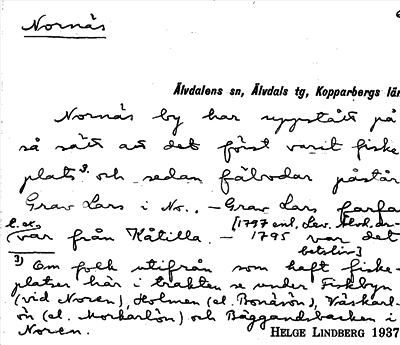 Nornäs
Älvdalens sn, Älvdals tg, Kopparbergs län
Nornäs by har uppstått på
så sätt att det först varit fiske
plats 3. och sedan fälvodar påstår
Grav Lars i No.. – Grav Lars farfa
[1797 enl. Lev.
var från Kåtilla. – 1795 var det
betslöv]
3) Om folk utifrån som haft fiske-
platser här i trakten se under Fiskbyn
(vid Noren), Holmen (el. Bonäsön), Våskarl-
ön (el. Morkarlön) och Båggandsbacken i
Noren.
HELGE LINDBERG 1937